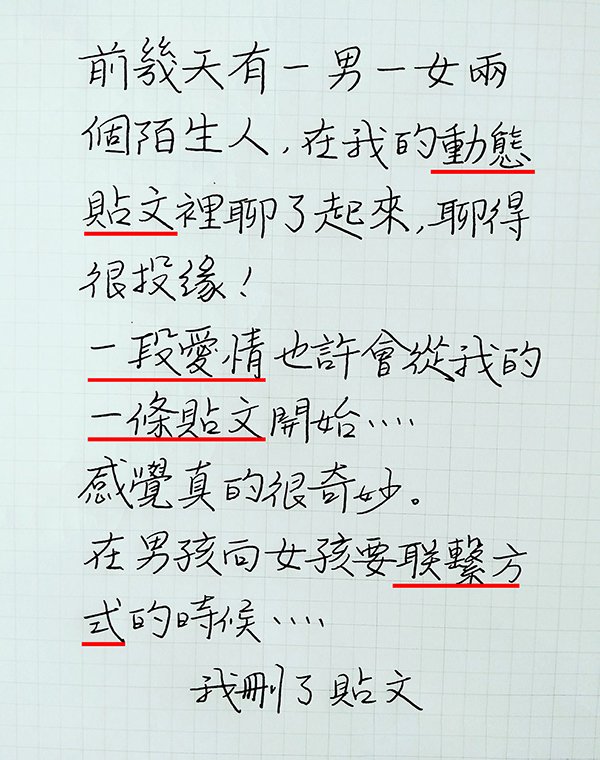 前幾天有一男一女兩
個陌生人,在我的動態
貼文裡聊了起來,聊得
很投緣!
一段愛情也許會從我的
一條貼文開始....
感覺真的很奇妙。
在男孩向女孩要联繫方
式的時候....
我刪了貼文